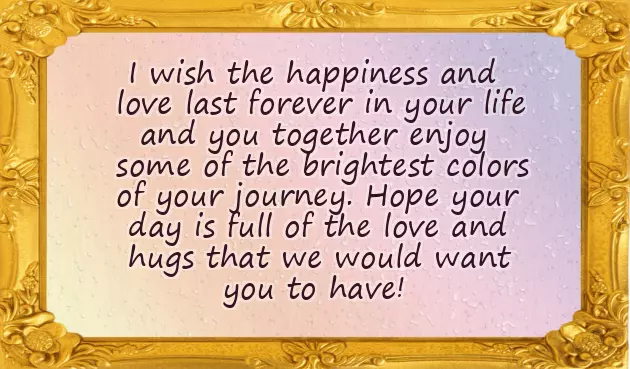 I wish the happiness and
love last forever in your life
and you together enjoy
some of the brightest colors
of your journey. Hope your
day is full of the love and
hugs that we would want
you to have!